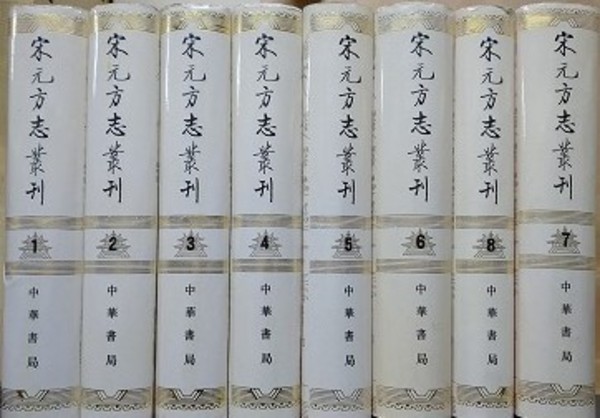 宋元方志叢刊
1
中華書局
宋元方志叢刊
2
中華書局
宋元方志叢刊
3
中華書局
宋元方志叢刊
4
中華書局
宋元方志叢刊
5
中華書局
宋元方志叢刊
6
中華書局
宋元方志叢刊
8
中華書局
宋元方志叢刊
7
中華書局